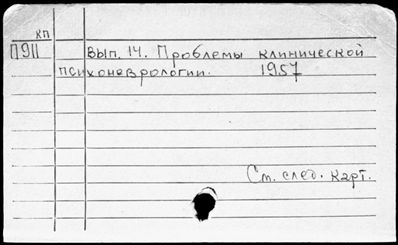 КП
П911 Вып. 14. Проблемы клинической
психоневрологии. 1957
См. след. карт.